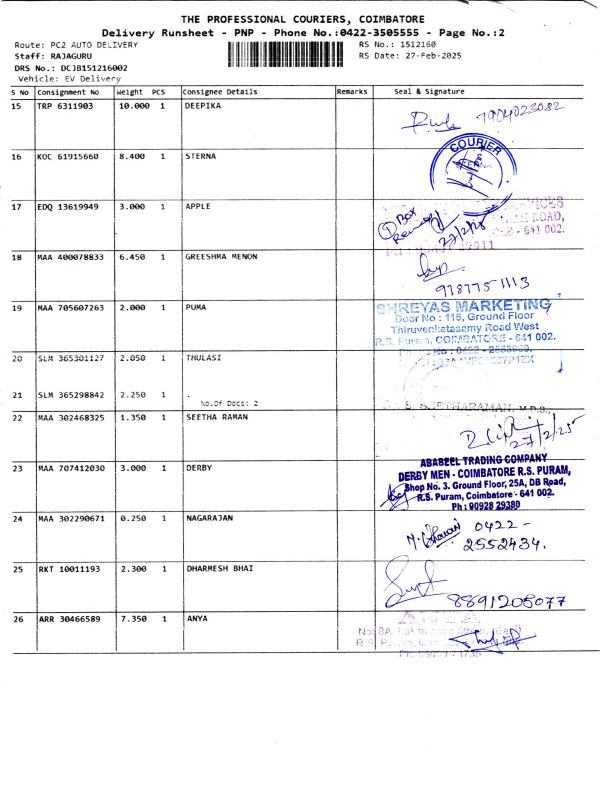 THE PROFESSIONAL COURIERS, COIMBATORE
Delivery Runsheet - PNP - Phone No.:0422-3505555 - Page No.:2
Route: PC2 AUTO DELIVERY RS No.: 1512160
Staff: RAJAGURU RS Date: 27-Feb-2025
DRS No.: DCJB151216002
Vehicle: EV Delivery
S No Consignment No Weight PCS Consignee Details Remarks Seal & Signature
15 TRP 6311903 10.000 1 DEEPIKA 7904023082
16 KOC 61915660 8.400 1 STERNA COURIER
17 EDQ 13619949 3.000 1 APPLE
1 Box
ROAD,
- 641 002.
27/2/25
18 MAA 400078833 6.450 1 GREESHMA MENON
9787751113
19 MAA 705607263 2.000 1 PUMA SHREYAS MARKETING
Door No : 115, Ground Floor
Thiruvenkatasamy Road West
R.S. Puram, COIMBATORE - 641 002.
20 SLM 365301127 2.050 1 THULASI
21 SLM 365298842 2.250 1 .
No.Of Docs: 2
22 MAA 302468325 1.350 1 SEETHA RAMAN
27/2/25
23 MAA 707412030 3.000 1 DERBY ABABEEL TRADING COMPANY
DERBY MEN - COIMBATORE R.S. PURAM,
Shop No. 3. Ground Floor, 25A, DB Road,
R.S. Puram, Coimbatore - 641 002.
Ph : 90928 29380
24 MAA 302290671 0.250 1 NAGARAJAN 0422-
2552434.
25 RKT 10011193 2.300 1 DHARMESH BHAI
8891205077
26 ARR 30466589 7.350 1 ANYA